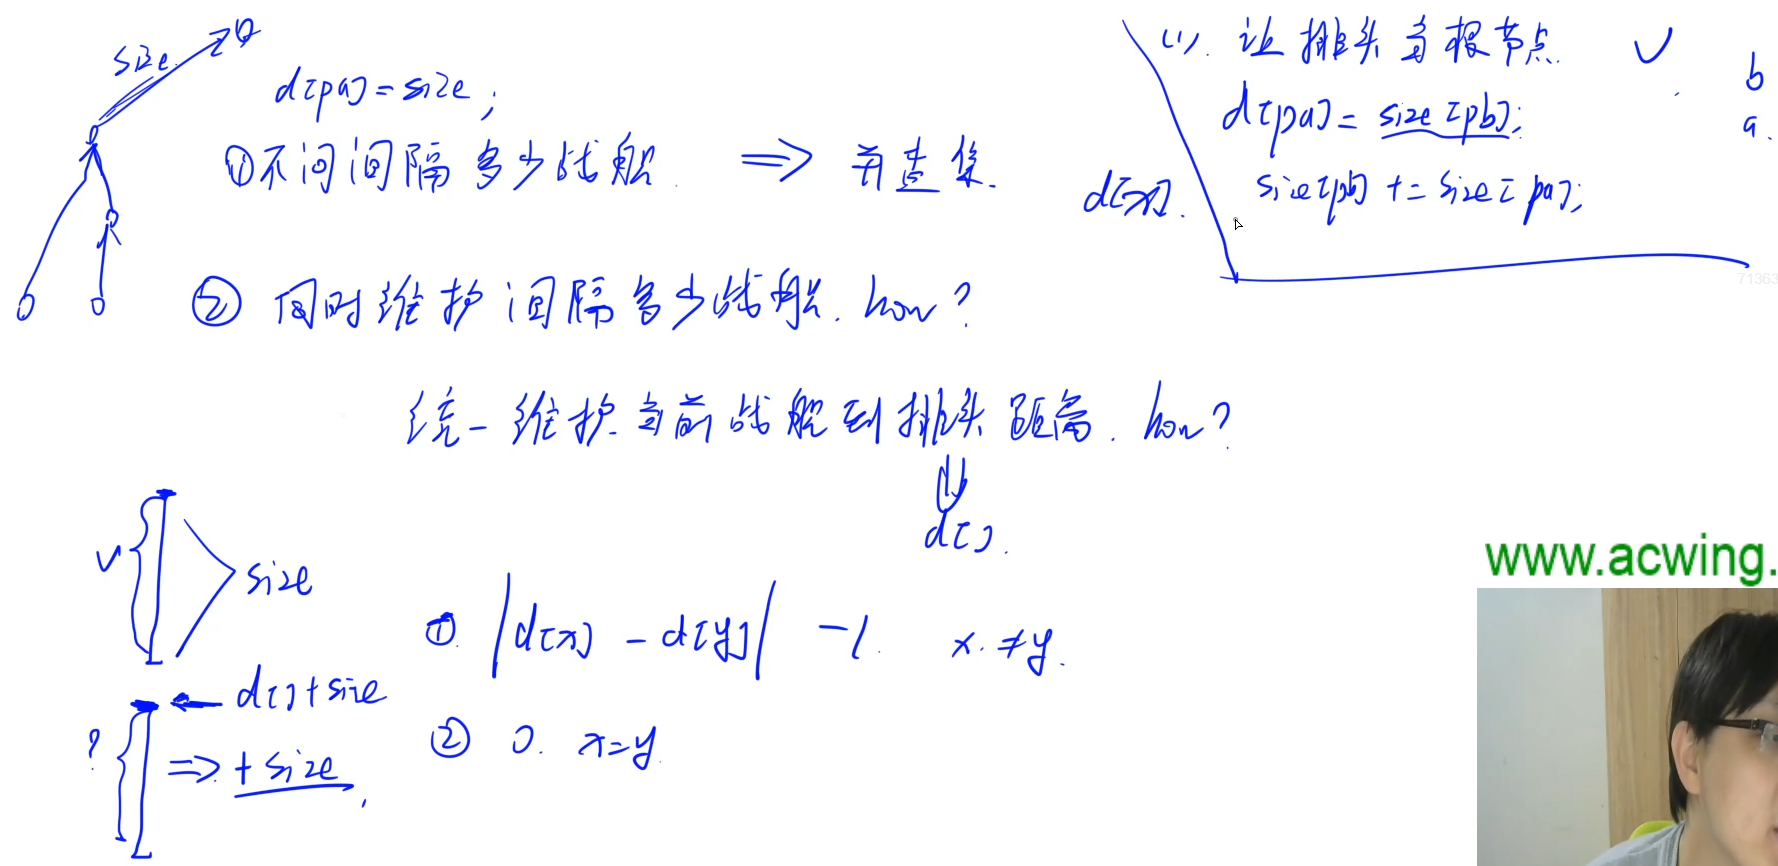 size
d[pa] = size;
①不问间隔多少战舰 ⇒ 并查集.
d[x].
(1). 让排头当根节点. ✓
d[pa] = size[pb];
size[pb] += size[pa];
b
a.
71363
② 同时维护间隔多少战舰. how?
统一维护当前战舰到排头距离. how?
d[].
✓ size
① |d[x] - d[y]| -1. x. ≠y.
← d[]+size
? ⇒ + size,
② 0. x=y.
www.acwing.